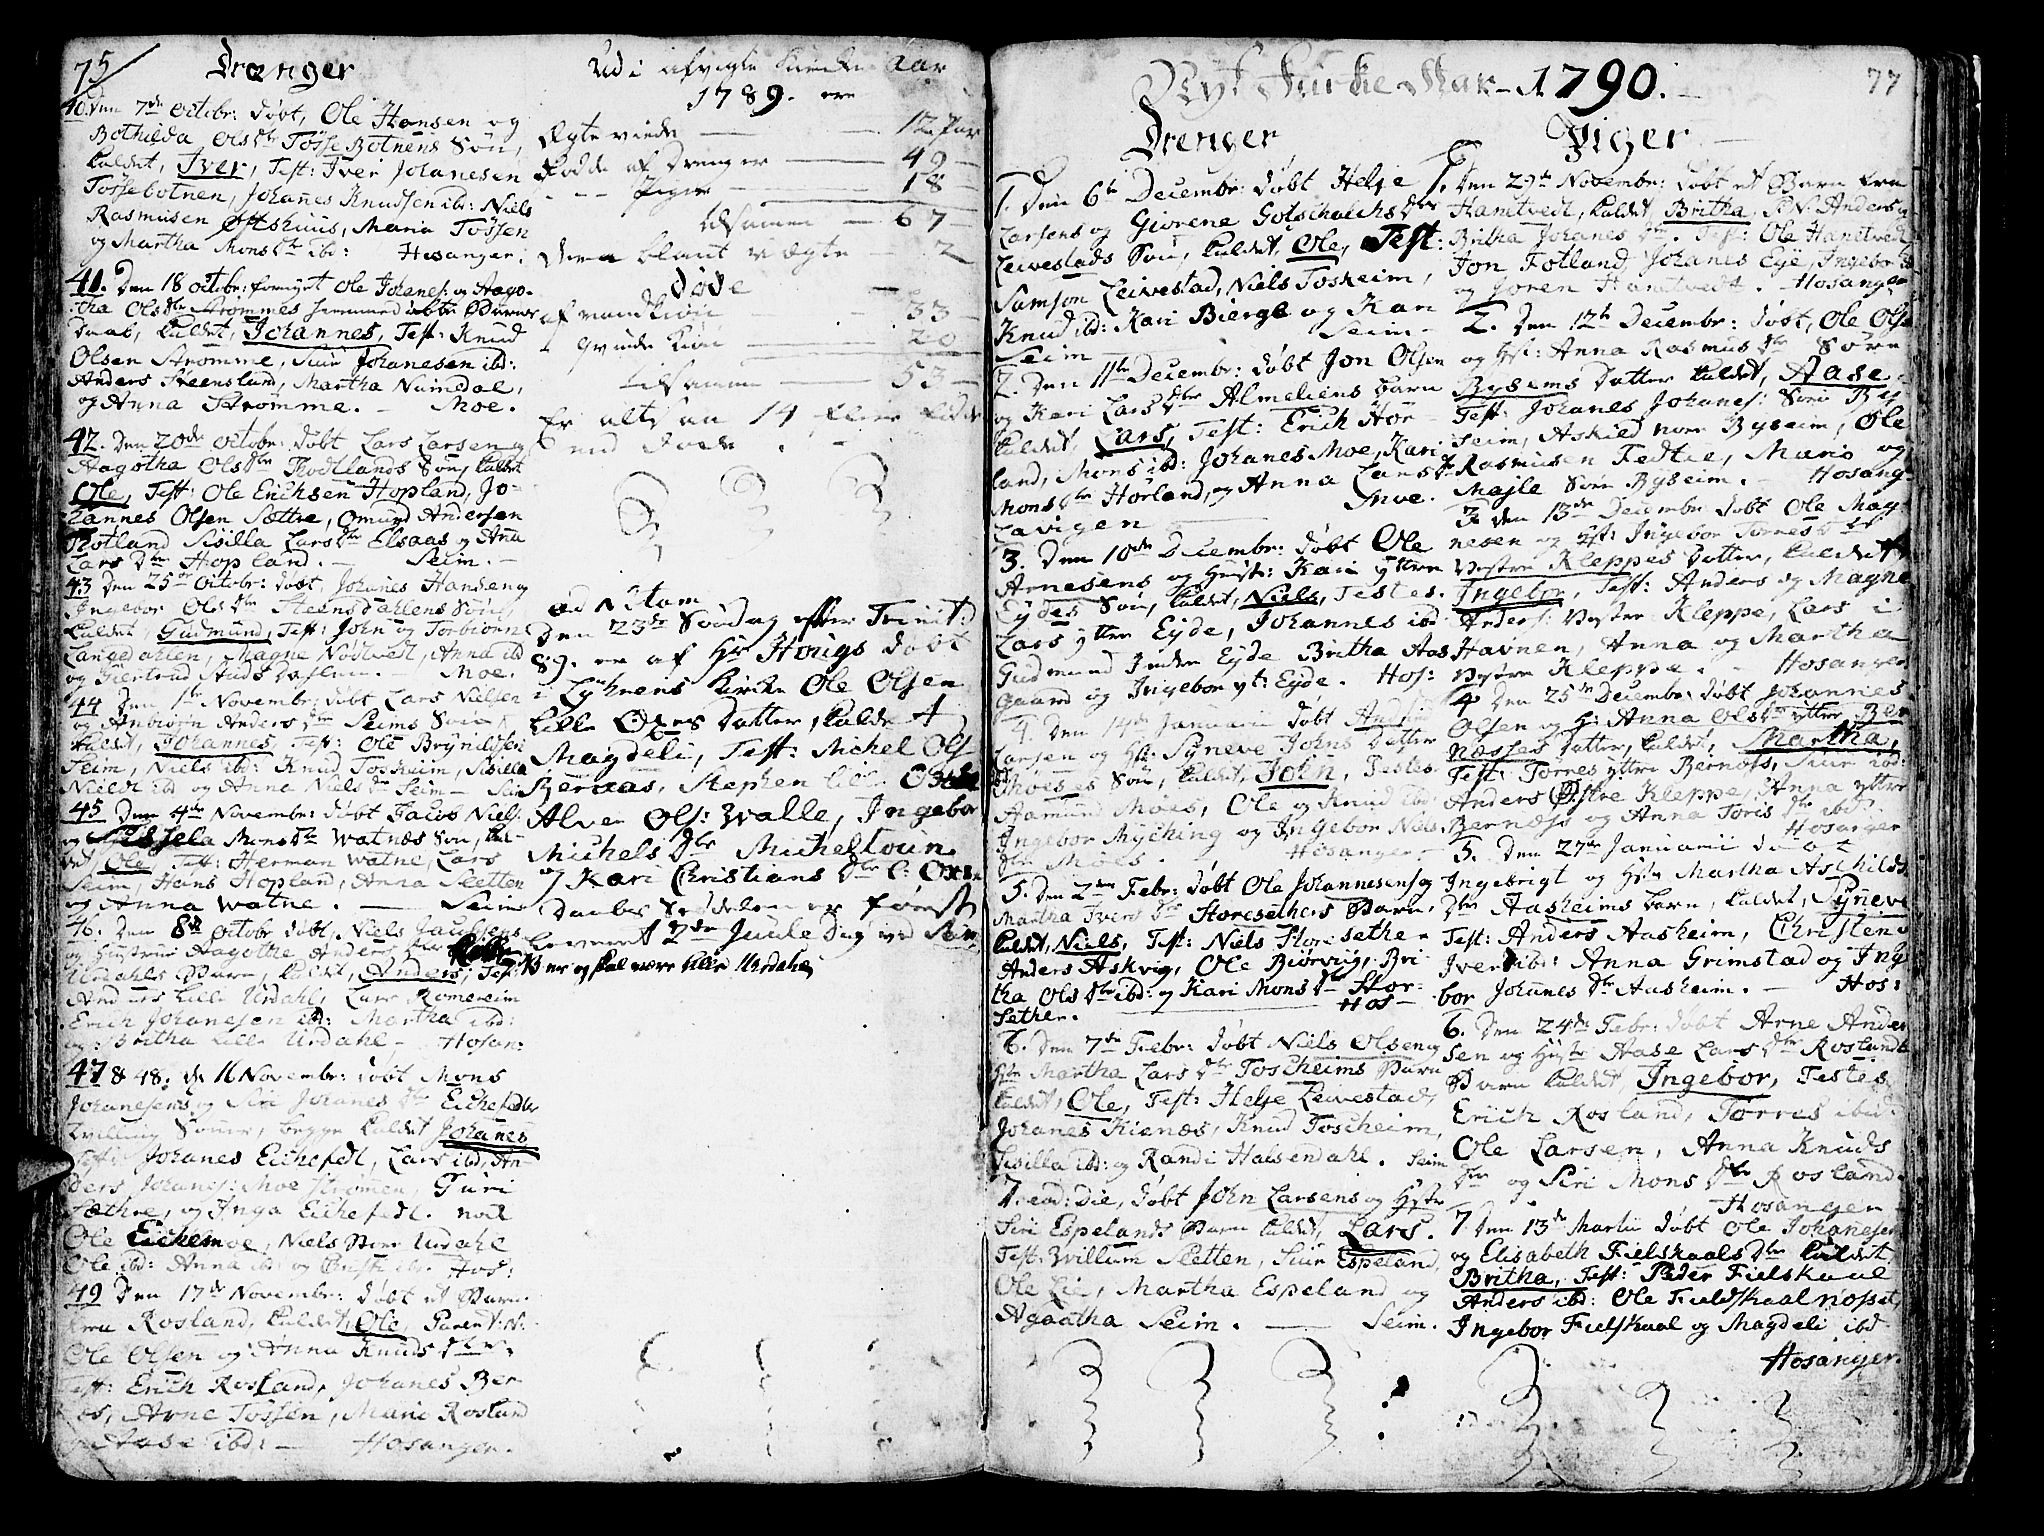 75
Drenger
40. Den 7de Octobr: døbt, Ole Hansen og
Bothilda Olsdtr Tøsse Botnens Søn,
kaldet, Iver, Test: Iver Johanesen
Tøssebotnen, Johanes Knudsen ibd: Niels
Rasmusen Øfsthuus, Maria Tøssen
og Martha Monsdtr ibd: Hosanger.
41. Den 18 octobr: fornyet Ole Johanes: og Aago-
tha Olsdtr Strømmes hiemmedøbte Barns
Daab, kaldet, Johannes, Test: Knud
Olsen Strømme, Siur Johanesen ibd:
Anders Steensland, Martha Numedal,
og Anna Strømme. - Moe.
42. Den 20de Octobr: døbt Lars Larsen og
Aagotha Olsdtr Rodtlands Søn, kaldet
Ole, Test: Ole Erichsen Hopland, Jo-
hannes Olsen Sættre, Omund Andersen
Rotland Sisilla Larsdtr Elsaas og Anna
Larsdtr Hopland. - Seim. -
43 Den 25de Octobr: døbt Johanes Hansen og
Ingebor Olsdtr Steensdahlens Søn,
kaldet, Gudmund, Test: John og Torbiørn
Langedahlen, Magne Nødtvedt, Anna ibd
og Giertrud - Moe.
44 Den 1te November: døbt Lars Nielsen
og Anbiørn Andersdtr Seims Søn,
kaldet, Johannes, Test: Ole Brynildsen
Seim, Niels ibd: Knud Toskeim, Sisilla
ibd og Anna Nielsdtr Seim - Seim
45 Den 4de Novembr: døbt Jacob Niels:
og Sissela Monsdtr Watnæs Søn, kal-
det, Ole, Test: Herman Watne, Lars
Seim, Hans Hopland, Anna Sletten
og Anna Watne. - Seim
46. Den 8de Octobr døbt, Niels
og Hustrue Aagothe Andersdtr Lille
Urdahls Barn, kaldet, Anders, Test:
Anders Lille Urdahl, Lars Romereim
Erich Johanesen ibd: Martha ibd:
og Britha Lille Urdahl - Hosan:
47 & 48. d. 16 Novembr: døbt Mons
Johanesens og Siri Johanesdtr Eichefedtes
Tvilling Sønner, begge kaldet Johanes
Test: Johanes Eichefedt, Lars ibd, An-
ders Johanes: Moe Strømen, Guri
Sæthre, og Inga Eichefedt. nok
Ole Eichemoe, Niels Store Urdahl
Ole ibd: Anna ibd: og ibd: Hos:
49 Den 17de Novembr: døbt et Barn
fra Rosland, kaldet, Ole, Parent: N:
Ole Olsen og Anna Knudsdtr.
Test: Erich Rosland, Johanes Ber
næs, Arne Tøssen, Mari Rosland
og Aase ibd: - Hosanger.
Udi afvigte Kirke Aar
1789. ere
Ægteviede - 12 Par
Fødde af Drenger - 49 -
- - Piger - 18 -
tilsamen - 67 -
Deraf blant uægte - 2
Døde
af mandkiøn - 33 -
- qvindekiøn - 20
tilsamen - 53 -
Er altsaa 14 fleere fødde
end døde.
ad Notam
Den 23de Søndag efter Trinit:
89. er af Hr Honigs døbt
i Lychrens kirke Ole Olsen
Lille Oxes Datter, kaldet
Magdeli, Test: Michel Ols:
Bernaas, Stephen lille Oxe
Alver Ols: Walle, Ingebor
Michelsdtr Micheltoun
og Kari Christiansdtr l: Oxe.
Daabs Sedelen er først
leveret 2de Juule Dag ved Seim
NB er og skal være Lille Urdahl
77
Nyt Kirke Aar - 1790. -
Drenger
1. Den 6te Decembr: døbt Helje
Larsens og Giørene Gotschalchsdtr
Leivestads Søn, kaldet, Ole, Test:
Samson Leivestad, Niels Toskeim,
Knud ibd: Kari Bierge og Kari
Seim - Seim -
2. Den 11te Decembr: døbt Jon Olsen
og Kari Larsdtr Almeliens Barn
kaldet, Lars, Test: Erich Hor-
land, Mons ibd: Johanes Moe, Kari
Monsdtr Horland, og Anna Larsdtr
Lavigen - Moe.
3. Den 10de Decembr: døbt Ole
Arnesens og Hust: Kari yttre
Eydes Søn, kaldet, Niels, Testes.
Lars yttre Eyde, Johannes ibd
Gudmund Indre Eyde Britha Aas
gaard og Ingebor yt: Eyde. Hos:
4. Den 14de Januarii døbt Anders
Larsen og Hst: Synneve Johns Datter
Moeses Søn, kaldet, John, Testes
Aamund Moes, Ole og Knud ibd:
Ingebor Myching og Ingebor Niels
dtr Moes. Hosanger -
5. Den 2den Febr: døbt Ole Johannesens og
Martha Iversdtr Storesethers Barn,
kaldet, Niels, Test: Niels Storesether
Anders Askvig, Ole Biørvig, Bri
tha Olsdtr ibd: og Kari Monsdtr Stor-
sether. Hos -
6. Den 7de Febr: døbt Niels Olsen og
Hstr Martha Larsdtr Toscheims Barn
kaldet, Ole, Test: Helje Leivestad,
Johanes Kienæs, Knud Toscheim,
Sisilla ibd: og Randi Halsendahl. Seim
7. eod: die, døbt John Larsens og Hstr
Siri Espelands Barn kaldet, Lars.
Test: Willum Sletten, Siur Espeland,
Ole Lie, Martha Espeland og
Agaatha Seim. - Seim.
Piger -
1. Den 29de Novembr: døbt et Barn fra
Hanstvedt, kaldet, Britha, P. N. Anders og
Britha Johanesdtr. Test: Ole Hanstvedt,
Jon Fotland, Johanes Eye, Ingebor
og Søren Hanstvedt. - Hosanger
2. Den 12te Decembr: døbt, Ole Olse
og Hst: Anna Rasmusdtr Søre
Bysems Datter kaldet, Aase,
Test: Johanes Johanes: Søre By-
seim, Askild nore Byseim, Ole
Rasmusen Fedtie, Maris og
Majle Søre Byseim. - Hosang-
3 den 13de Decembr døbt Ole Mag-
nesen og Hst: Ingebor Torresdtr
Vestre Kleppes Datter, kaldet
Ingebor, Test: Anders og Magne
Anders: Vestre Kleppe, Lars i
Havnen, Anna og Martha
Vestre Kleppe. - Hosanger
4 Den 25de Decembr: døbt Johannes
Olsen og H: Anna Olsdtr yttre Ber
næsses Datter, kaldet, Martha,
Test: Torres yttre Bernæs, Siur ibd:
Anders Østre Kleppe, Anna yttre
Bernæss og Anna Torisdtr ibd:
Hosanger
5. Den 27de Januarii døbt
Ingebrigt og Hstr Martha Aschilds
dtr Aasheims Barn, kaldet, Synneve
Test: Anders Aasheim, Christen
Iver ibd: Anna Grimstad og Inge
bor Johanesdtr Aasheim. - Hos:
6. Den 24de Febr: døbt Arne Ander
sen og Hstr Aase Larsdtr Roslands
Barn kaldet, Ingebor, Testes
Erich Rosland, Torres ibid:
Ole Larsen, Anna Knuds
dtr og Siri Monsdtr Rosland.
Hosanger
7 Den 13de Martii døbt Ole Johanesen
og Elisabeth Fielskaalsdtr kaldet
Britha, Test: Peder Fielskaal
Anders ibd: Ole Fieldskaal nopst,
Ingebor Fielskaal og Magdeli ibd
Hosanger.